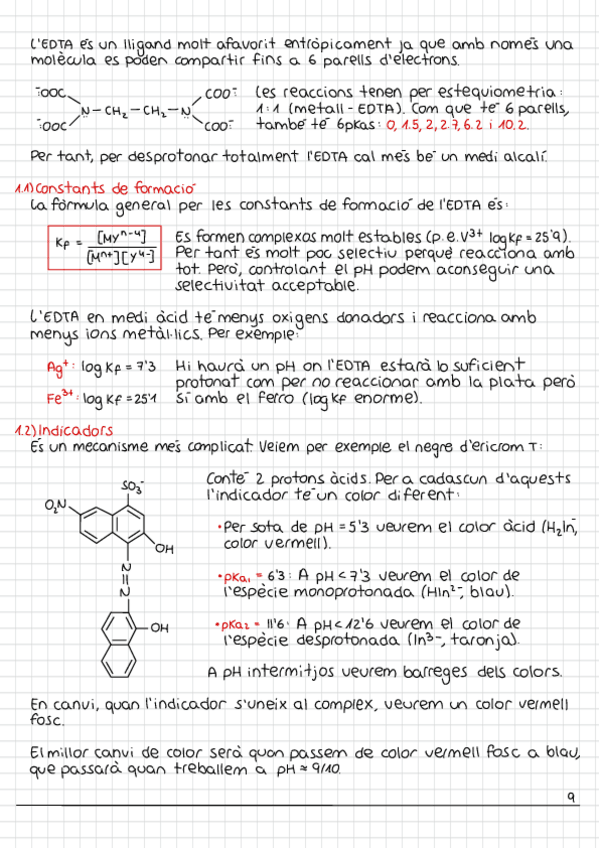 L'EDTA és un lligand molt afavorit entròpicament ja que amb només una
molècula es poden compartir fins a 6 parells d'electrons.
-OOC COO-
N-CH2-CH2-N
-OOC COO-
Les reaccions tenen per estequiometria:
1:1 (metall-EDTA). Com que té 6 parells,
també té 6pkas: 0, 1.5, 2, 2.7, 6.2 i 10.2.
Per tant, per desprotonar totalment l'EDTA cal més bé un medi alcalí.
1.1) Constants de formació
La fórmula general per les constants de formació de l'EDTA és:
Kf = [MY^n-4] / [M^n+][Y^4-]
Es formen complexos molt estables (p.e. V3+ log Kf = 25'9).
Per tant és molt poc selectiu perquè reacciona amb
tot. Però, controlant el pH podem aconseguir una
selectivitat acceptable.
L'EDTA en medi àcid té menys oxigens donadors i reacciona amb
menys ions metàl·lics. Per exemple:
Ag+: log Kf = 7'3
Fe3+: log Kf = 25'1
Hi haurà un pH on l'EDTA estarà lo suficient
protonat com per no reaccionar amb la plata però
sí amb el ferro (log Kf enorme).
1.2) Indicadors
És un mecanisme més complicat. Veiem per exemple el negre d'ericrom T:
SO3-
O2N
OH
N
=
N
OH
Conté 2 protons àcids. Per a cadascun d'aquests
l'indicador té un color diferent:
•Per sota de pH = 5'3 veurem el color àcid (H2In-,
color vermell).
•pKa1 = 6'3: A pH < 7'3 veurem el color de
l'espècie monoprotonada (HIn2-, blau).
•pKa2 = 11'6: A pH < 12'6 veurem el color de
l'espècie desprotonada (In3-, taronja).
A pH intermitjos veurem barreges dels colors.
En canvi, quan l'indicador s'uneix al complex, veurem un color vermell
fosc.
El millor canvi de color serà quan passem de color vermell fosc a blau,
que passarà quan treballem a pH ≈ 9/10.
9